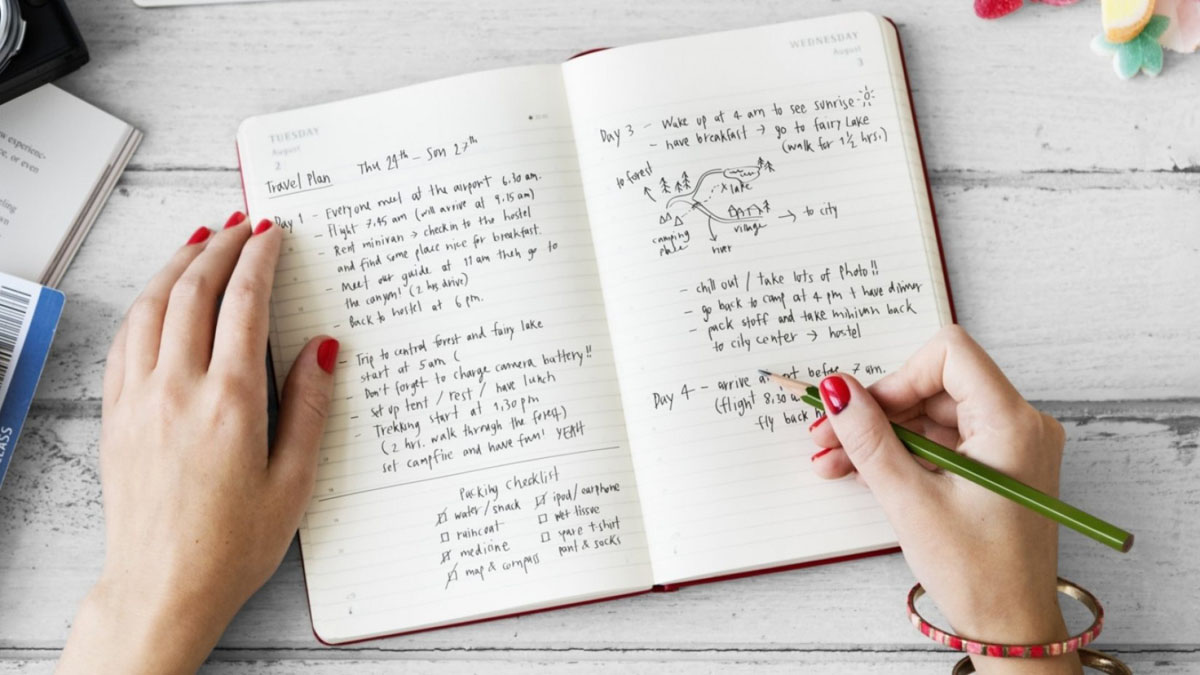 new experienc-
ce, or even
CLASS
TUESDAY
August
2
Travel Plan Thu 24th - Sun 27th
Day 1 - Everyone meet at the airport 6.30 am.
- Flight 7.45 am (will arrive at 9.15 am)
- Rent minivan → checkin to the hostel
and find some place nice for breakfast.
- Meet our guide at 11 am then go to
the canyon! (2 hrs. drive)
- Back to hostel at 6 pm.
- Trip to central forest and fairy lake
start at 5 am (
- Don't forget to charge camera battery!!
- Set up tent / rest / have lunch
- Trekking start at 1,30 pm
(2 hrs. walk through the forest)
set campfire and have fun! YEAH
Packing Checklist
water / snack
raincoat
medicine
map & compass
ipod / earphone
wet tissue
spare t-shirt
pant & socks
WEDNESDAY
August
3
Day 3 - Wake up at 4 am to see sunrise
- have breakfast → go to fairy Lake
(walk for 1 1/2 hrs.)
to forest
x lake
camping
village
→ to city
river
- chill out / take lots of photo!!
- go back to camp at 4 pm + have dinner
- pack stuff and take minivan back
to city center → hostel
Day 4 - arrive before 7 am.
(flight 8,30
fly back